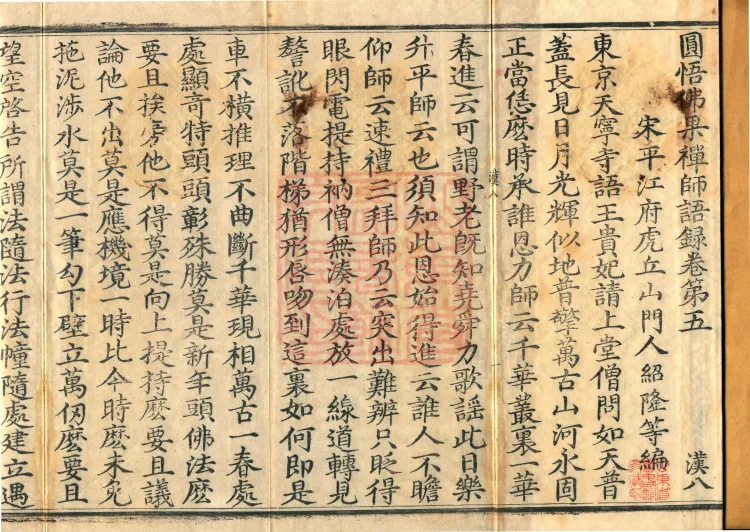 圓悟佛果禪師語録卷第五　漢八
宋平江府虎丘山門人紹隆等編
東京天寧寺語王貴妃請上堂僧問如天普
蓋長見日月光輝似地普擎萬古山河永固
正當恁麽時承誰恩力師云千華叢裏一華
春進云可謂野老既知堯舜力歌謡此日樂
升平師云也須知此恩始得進云誰人不瞻
仰師云速禮三拜師乃云突出難辨只眨得
眼閃電提持衲僧無湊泊處放一線道轉見
聱訛不落階梯猶形唇吻到這裏如何即是
車不横推理不曲斷千華現相萬古一春處
處顯奇特頭頭彰殊勝莫是新年頭佛法麽
要且挨旁他不得莫是向上提持麽要且議
論他不出莫是應機境一時比今時麽未免
拖泥涉水莫是一筆勾下壁立萬仞麽要且
望空啓告所謂法隨法行法幢隨處建立遇